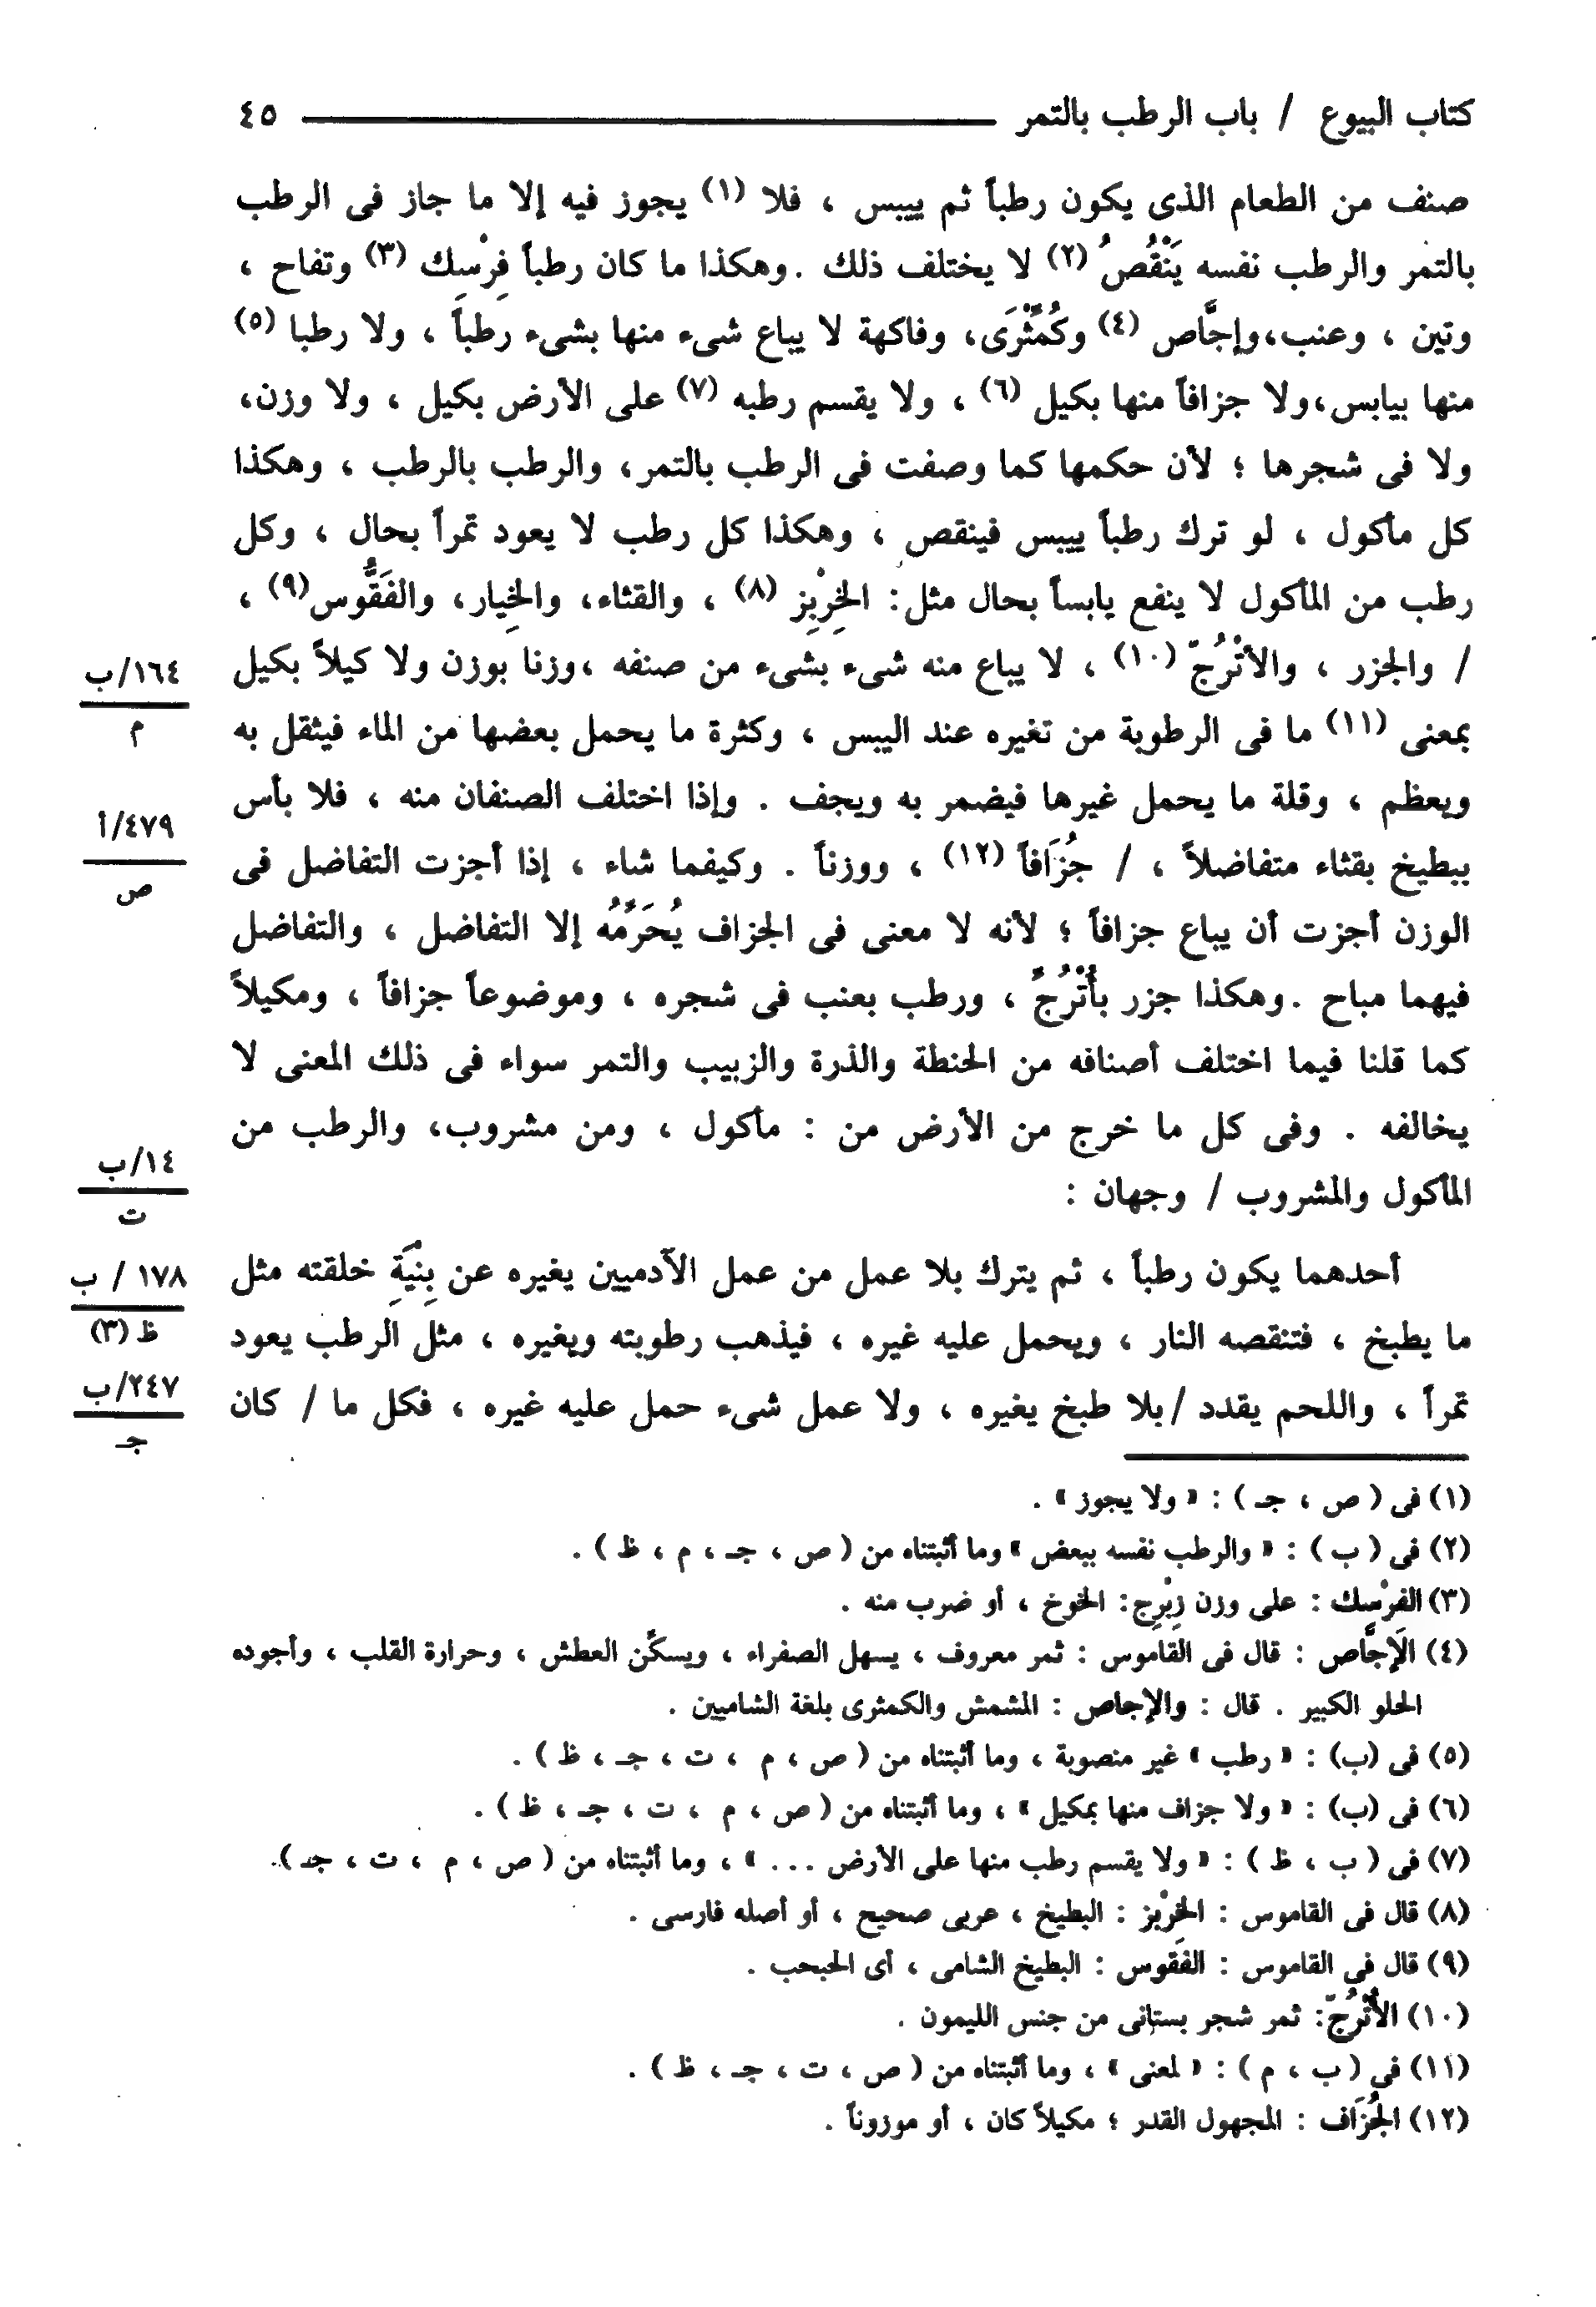 كتاب البيوع / باب الرطب بالتمر ٤٥
صنف من الطعام الذى يكون رطباً ثم ييبس ، فلا (١) يجوز فيه إلا ما جاز فى الرطب
بالتمر والرطب نفسه يَنْقُصُ (٢) لا يختلف ذلك . وهكذا ما كان رطباً فِرْسِك (٣) وتفاح ،
وتين ، وعنب، وإجَّاص (٤) وكُمَّثْرَى، وفاكهة لا يباع شىء منها بشىء رطباً ، ولا رطبا (٥)
منها بيابس، ولا جزافاً منها بكيل (٦) ، ولا يقسم رطبه (٧) على الأرض بكيل ، ولا وزن،
ولا فى شجرها ؛ لأن حكمها كما وصفت فى الرطب بالتمر، والرطب بالرطب ، وهكذا
كل مأكول ، لو ترك رطباً ييبس فينقص ، وهكذا كل رطب لا يعود تمراً بحال ، وكل
رطب من المأكول لا ينفع يابساً بحال مثل: الخِرْبِز (٨) ، والقثاء، والخِيار، والفَقُّوس(٩) ،
/ والجزر ، والأتْرُجّ (١٠) ، لا يباع منه شىء بشىء من صنفه ،وزنا بوزن ولا كيلاً بكيل
١٦٤/ب
م
بمعنى (١١) ما فى الرطوبة من تغيره عند اليبس ، وكثرة ما يحمل بعضها من الماء فيثقل به
ويعظم ، وقلة ما يحمل غيرها فيضمر به ويجف . وإذا اختلف الصنفان منه ، فلا بأس
ببطيخ بقثاء متفاضلاً ، / جُزَافاً (١٢) ، ووزناً . وكيفما شاء ، إذا أجزت التفاضل فى
٤٧٩/أ
ص
الوزن أجزت أن يباع جزافاً ؛ لأنه لا معنى فى الجزاف يُحَرِّمُه إلا التفاضل ، والتفاضل
فيهما مباح . وهكذا جزر بأُتْرُجٍّ ، ورطب بعنب فى شجره ، وموضوعاً جزافاً ، ومكيلاً
كما قلنا فيما اختلف أصنافه من الحنطة والذرة والزبيب والتمر سواء فى ذلك المعنى لا
يخالفه . وفى كل ما خرج من الأرض من : مأكول ، ومن مشروب، والرطب من
المأكول والمشروب / وجهان :
١٤/ب
ت
أحدهما يكون رطباً ، ثم يترك بلا عمل من عمل الآدميين يغيره عن بِنْيَةِ خلقته مثل
١٧٨ / ب
ظ (٣)
ما يطبخ ، فتنقصه النار ، ويحمل عليه غيره ، فيذهب رطوبته ويغيره ، مثل الرطب يعود
تمراً ، واللحم يقدد /بلا طبخ يغيره ، ولا عمل شىء حمل عليه غيره ، فكل ما / كان
٢٤٧/ب
جـ
(١) فى ( ص ، جـ ) : « ولا يجوز » .
(٢) فى ( ب ) : « والرطب نفسه ببعض » وما أثبتناه من ( ص ، جـ ، م ، ظ ) .
(٣) الفِرْسِك : على وزن زِبْرِج: الخوخ ، أو ضرب منه .
(٤) الإجَّاص : قال فى القاموس : ثمر معروف ، يسهل الصفراء ، ويسكِّن العطش ، وحرارة القلب ، وأجوده
الحلو الكبير . قال : والإجاص : المشمش والكمثرى بلغة الشاميين .
(٥) فى (ب) : « رطب » غير منصوبة ، وما أثبتناه من ( ص ، م ، ت ، جـ ، ظ ) .
(٦) فى (ب) : « ولا جزاف منها بمكيل » ، وما أثبتناه من ( ص ، م ، ت ، جـ ، ظ ) .
(٧) فى ( ب ، ظ ) : « ولا يقسم رطب منها على الأرض ... » ، وما أثبتناه من ( ص ، م ، ت ، جـ ).
(٨) قال فى القاموس : الخِرْبِز : البطيخ ، عربى صحيح ، أو أصله فارسى .
(٩) قال فى القاموس : الفَقوس : البطيخ الشامى ، أى الحبحب .
(١٠) الأُتْرُجّ: ثمر شجر بستانى من جنس الليمون .
(١١) فى ( ب ، م ) : « لمعنى » ، وما أثبتناه من ( ص ، ت ، جـ ، ظ ) .
(١٢) الجُزَاف : المجهول القدر ؛ مكيلاً كان ، أو موزوناً .